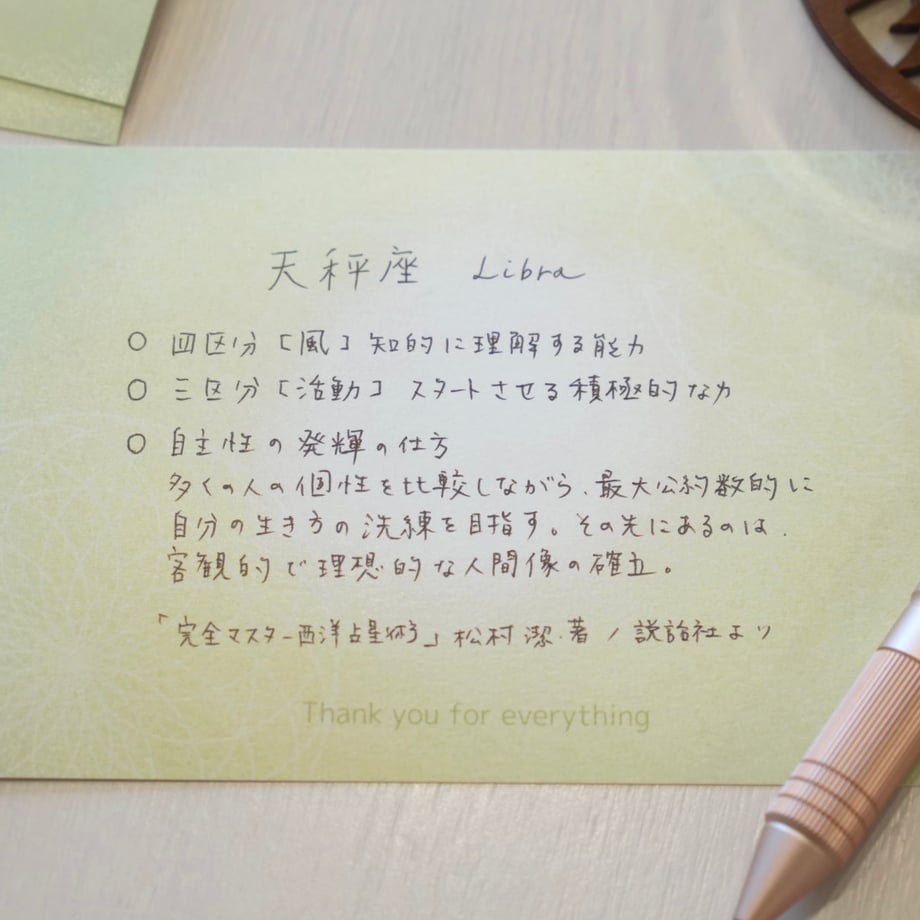 天秤座 Libra
○ 四区分［風］知的に理解する能力
○ 三区分［活動］スタートさせる積極的な力
○ 自主性の発揮の仕方
多くの人の個性を比較しながら、最大公約数的に
自分の生き方の洗練を目指す。その先にあるのは、
客観的で理想的な人間像の確立。
「完全マスター西洋占星術」松村潔・著／説話社より
Thank you for everything